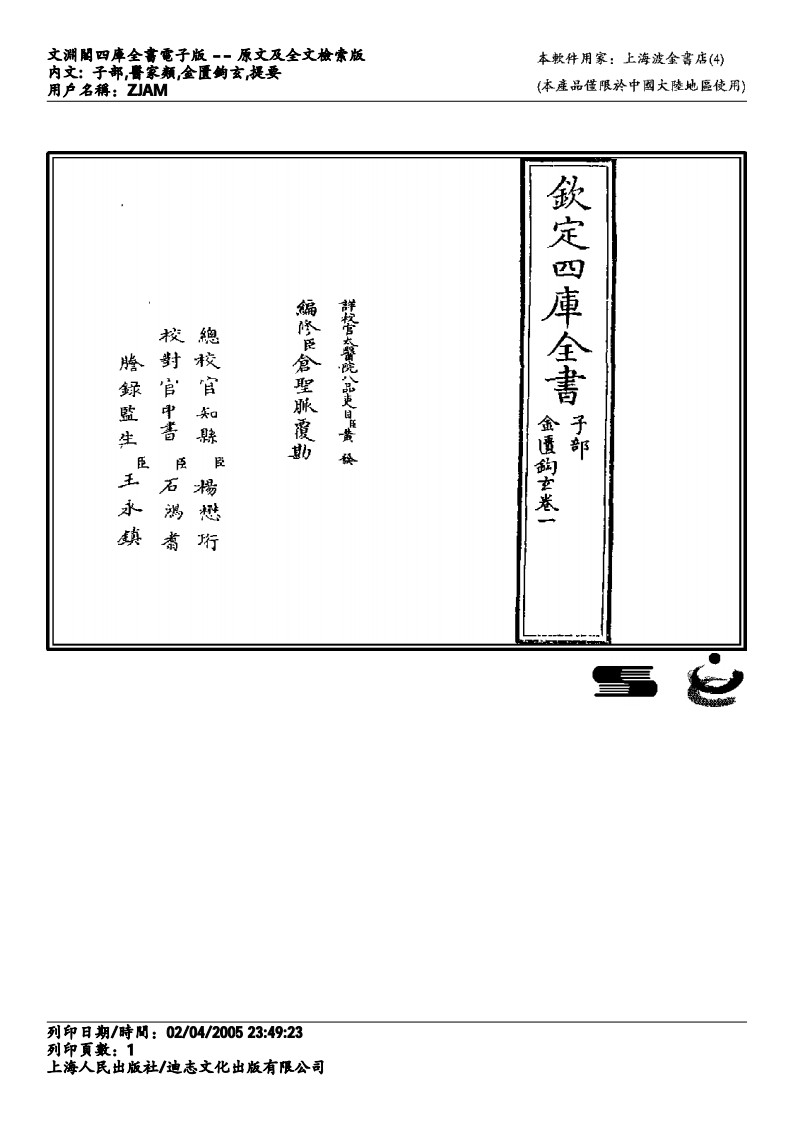 文淵閣四庫全書電子版 -- 原文及全文檢索版
內文: 子部,醫家類,金匱鉤玄,提要
用戶名稱: ZJAM
本軟件用家: 上海波金書店(4)
(本產品僅限於中國大陸地區使用)
欽定四庫全書
子部
金匱鈎玄卷一
詳校官太醫院八品吏目臣黃
編修臣倉聖脈覆勘
總校官知縣臣楊懋珩
校對官中書臣石鴻翥
謄錄監生臣王永鎮
列印日期/時間: 02/04/2005 23:49:23
列印頁數: 1
上海人民出版社/迪志文化出版有限公司